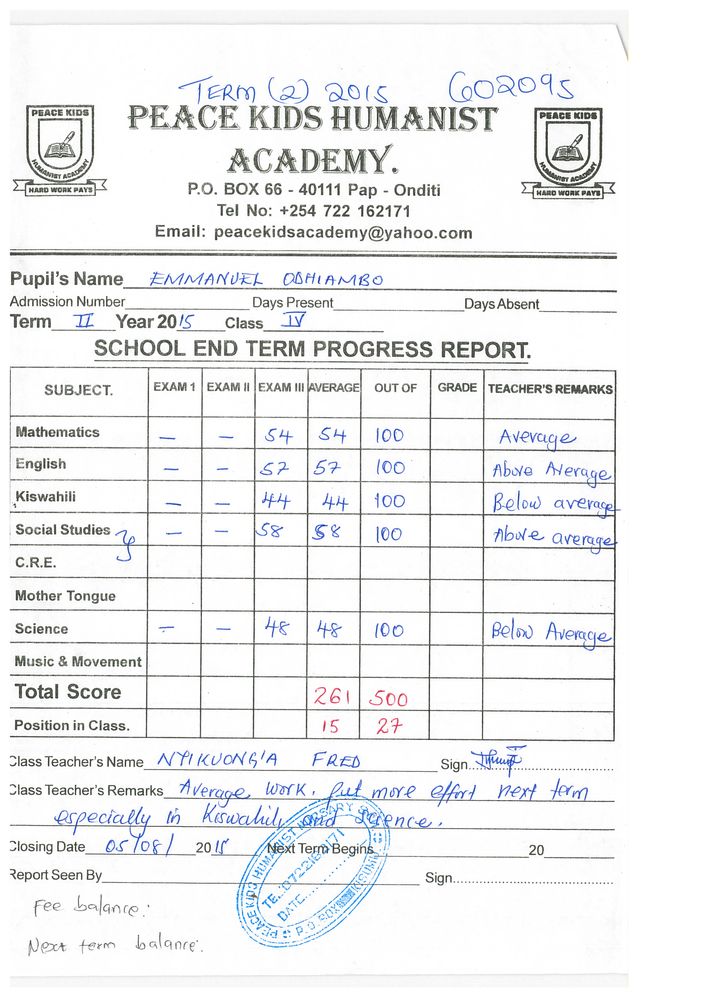 TERM (2) 2015 602095
PEACE KIDS HUMANIST
ACADEMY.
PEACE KIDS
HUMANIST ACADEMY
HARD WORK PAYS
PEACE KIDS
HUMANIST ACADEMY
HARD WORK PAYS
P.O. BOX 66 - 40111 Pap - Onditi
Tel No: +254 722 162171
Email: peacekidsacademy@yahoo.com
Pupil's Name EMMANUEL ODHIAMBO
Admission Number Days Present Days Absent
Term II Year 2015 Class IV
SCHOOL END TERM PROGRESS REPORT.
SUBJECT. EXAM 1 EXAM II EXAM III AVERAGE OUT OF GRADE TEACHER'S REMARKS
Mathematics — — 54 54 100 Average
English — — 57 57 100 Above Average
Kiswahili — — 44 44 100 Below average
Social Studies } — — 58 58 100 Above average
C.R.E.
Mother Tongue
Science — — 48 48 100 Below Average
Music & Movement
Total Score 261 500
Position in Class. 15 27
Class Teacher's Name NYIKUONG'A FRED Sign
Class Teacher's Remarks Average work. Put more effort next term
especially in Kiswahili and Science.
Closing Date 05/08/ 2015 Next Term Begins 20
Report Seen By Sign
PEACE KIDS HUMANIST
TEL: 0722162171
DATE
P.O. BOX KISUMU
Fee balance:
Next term balance: